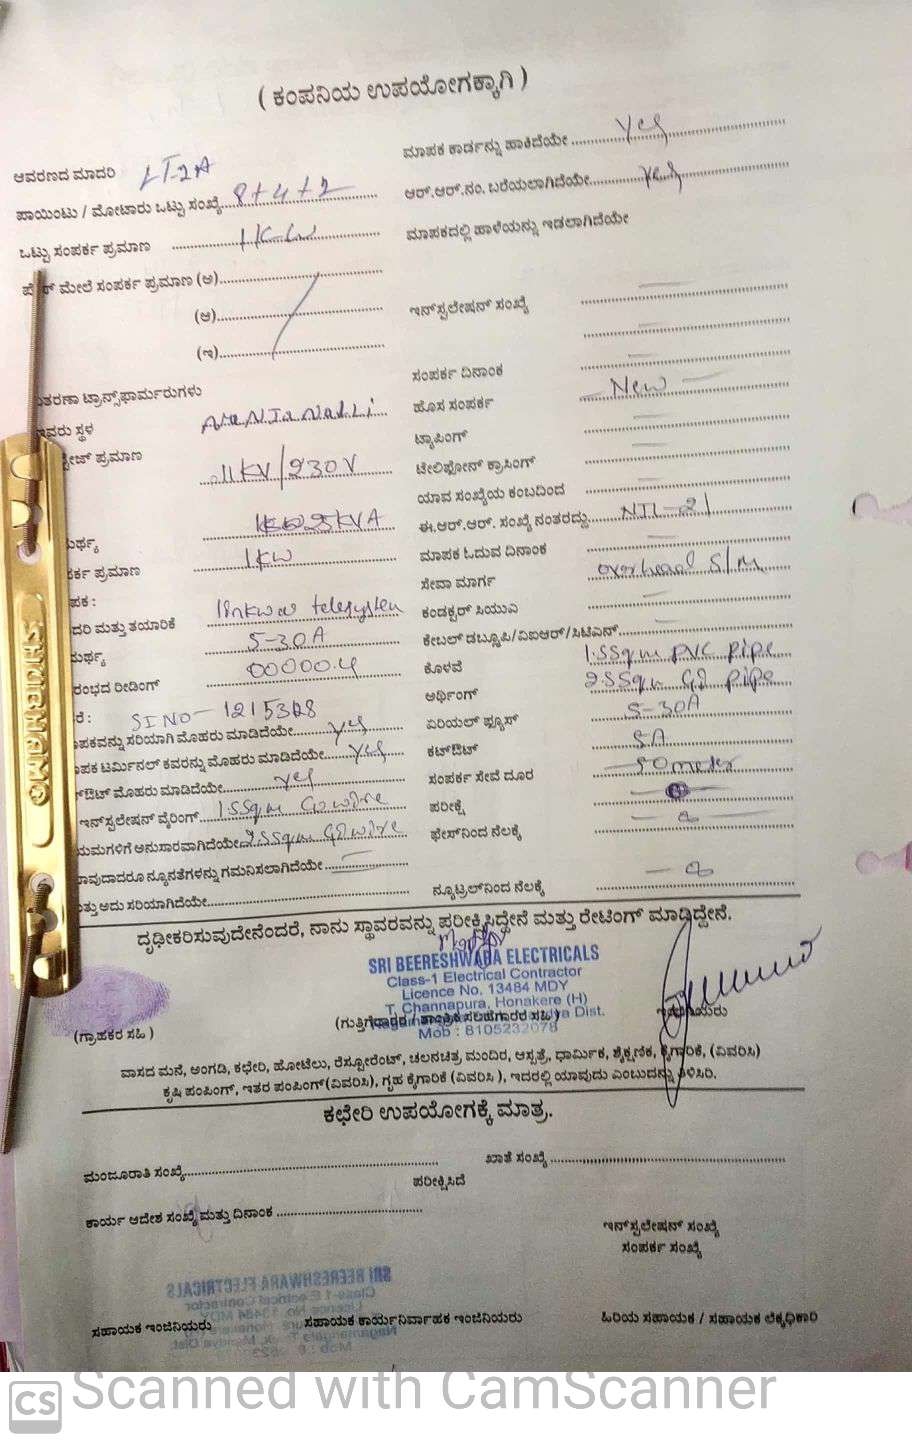 ( ಕಂಪನಿಯ ಉಪಯೋಗಕ್ಕಾಗಿ )
ಆವರಣದ ಮಾದರಿ LT-2A
ಪಾಯಿಂಟು / ಮೋಟಾರು ಒಟ್ಟು ಸಂಖ್ಯೆ 8+4+2
ಒಟ್ಟು ಸಂಪರ್ಕ ಪ್ರಮಾಣ 1KW
ಮೇಲೆ ಸಂಪರ್ಕ ಪ್ರಮಾಣ (ಅ)
(ಆ)
(ಇ)
ತರಣಾ ಟ್ರಾನ್ಸ್‌ಫಾರ್ಮರುಗಳು
ವರು ಸ್ಥಳ
ಟೇಜ್ ಪ್ರಮಾಣ 11KV/230V
ಮರ್ಥ್ಯ 25KVA
ರ್ಕ ಪ್ರಮಾಣ 1KW
ಪಕ :
ದರಿ ಮತ್ತು ತಯಾರಿಕೆ linkwel telesystem
ಮರ್ಥ್ಯ 5-30A
ರಂಭದ ರೀಡಿಂಗ್ 00000.4
ರೆ : SI NO-
ಪಕವನ್ನು ಸರಿಯಾಗಿ ಮೊಹರು ಮಾಡಿದೆಯೇ yes
ಪಕ ಟರ್ಮಿನಲ್ ಕವರನ್ನು ಮೊಹರು ಮಾಡಿದೆಯೇ yes
ಔಟ್ ಮೊಹರು ಮಾಡಿದೆಯೇ yes
ಇನ್‌ಸ್ಟಲೇಷನ್ ವೈರಿಂಗ್ 1.5Sqm Cu wire
ಯಮಗಳಿಗೆ ಅನುಸಾರವಾಗಿದೆಯೇ 2.5Sqm GI wire
ಾವುದಾದರೂ ನ್ಯೂನತೆಗಳನ್ನು ಗಮನಿಸಲಾಗಿದೆಯೇ
ತ್ತು ಅದು ಸರಿಯಾಗಿದೆಯೇ
ಮಾಪಕ ಕಾರ್ಡನ್ನು ಹಾಕಿದೆಯೇ yes
ಆರ್.ಆರ್.ನಂ. ಬರೆಯಲಾಗಿದೆಯೇ yes
ಮಾಪಕದಲ್ಲಿ ಹಾಳೆಯನ್ನು ಇಡಲಾಗಿದೆಯೇ
ಇನ್‌ಸ್ಟಲೇಷನ್ ಸಂಖ್ಯೆ
ಸಂಪರ್ಕ ದಿನಾಂಕ
ಹೊಸ ಸಂಪರ್ಕ New
ಟ್ಯಾಪಿಂಗ್
ಟೇಲಿಫೋನ್ ಕ್ರಾಸಿಂಗ್
ಯಾವ ಸಂಖ್ಯೆಯ ಕಂಬದಿಂದ
ಈ.ಆರ್.ಆರ್. ಸಂಖ್ಯೆ ನಂತರದ್ದು NJL-21
ಮಾಪಕ ಓದುವ ದಿನಾಂಕ
ಸೇವಾ ಮಾರ್ಗ overhead S/M
ಕಂಡಕ್ಟರ್ ಸಿಯುಎ
ಕೇಬಲ್ ಡಬ್ಲ್ಯೂಪಿ/ವಿಐಆರ್/ಸಿಟಿಎನ್
ಕೊಳವೆ 1.5Sqm PVC pipe
ಅರ್ಥಿಂಗ್ 2.5Sqm GI pipe
ಏರಿಯಲ್ ಫ್ಯೂಸ್ 5-30A
ಕಟ್‌ಔಟ್ 5A
ಸಂಪರ್ಕ ಸೇವೆ ದೂರ 50 meter
ಪರೀಕ್ಷೆ
ಫೇಸ್‌ನಿಂದ ನೆಲಕ್ಕೆ
ನ್ಯೂಟ್ರಲ್‌ನಿಂದ ನೆಲಕ್ಕೆ
ದೃಢೀಕರಿಸುವುದೇನೆಂದರೆ, ನಾನು ಸ್ಥಾವರವನ್ನು ಪರೀಕ್ಷಿಸಿದ್ದೇನೆ ಮತ್ತು ರೇಟಿಂಗ್ ಮಾಡಿದ್ದೇನೆ.
SRI BEERESHWARA ELECTRICALS
Class-1 Electrical Contractor
Licence No. 13484 MDY
T. Channapura, Honakere (H)
Mob : 8105232078
(ಗ್ರಾಹಕರ ಸಹಿ )
(ಗುತ್ತಿಗೆದಾರರ / ತಾಂತ್ರಿಕ ಸಲಹೆಗಾರರ ಸಹಿ )
ವಾಸದ ಮನೆ, ಅಂಗಡಿ, ಕಛೇರಿ, ಹೋಟೆಲು, ರೆಸ್ಟೋರೆಂಟ್, ಚಲನಚಿತ್ರ, ಮಂದಿರ, ಆಸ್ಪತ್ರೆ, ಧಾರ್ಮಿಕ, ಶೈಕ್ಷಣಿಕ, ಕೈಗಾರಿಕೆ, (ವಿವರಿಸಿ)
ಕೃಷಿ ಪಂಪಿಂಗ್, ಇತರ ಪಂಪಿಂಗ್(ವಿವರಿಸಿ), ಗೃಹ ಕೈಗಾರಿಕೆ (ವಿವರಿಸಿ ), ಇದರಲ್ಲಿ ಯಾವುದು ಎಂಬುದನ್ನು ತಿಳಿಸಿರಿ.
ಕಛೇರಿ ಉಪಯೋಗಕ್ಕೆ ಮಾತ್ರ.
ಮಂಜೂರಾತಿ ಸಂಖ್ಯೆ
ಖಾತೆ ಸಂಖ್ಯೆ
ಪರೀಕ್ಷಿಸಿದೆ
ಕಾರ್ಯ ಆದೇಶ ಸಂಖ್ಯೆ ಮತ್ತು ದಿನಾಂಕ
ಇನ್‌ಸ್ಟಲೇಷನ್ ಸಂಖ್ಯೆ
ಸಂಪರ್ಕ ಸಂಖ್ಯೆ
ಸಹಾಯಕ ಇಂಜಿನಿಯರು
ಸಹಾಯಕ ಕಾರ್ಯನಿರ್ವಾಹಕ ಇಂಜಿನಿಯರು
ಹಿರಿಯ ಸಹಾಯಕ / ಸಹಾಯಕ ಲೆಕ್ಕಧಿಕಾರಿ
CS Scanned with CamScanner